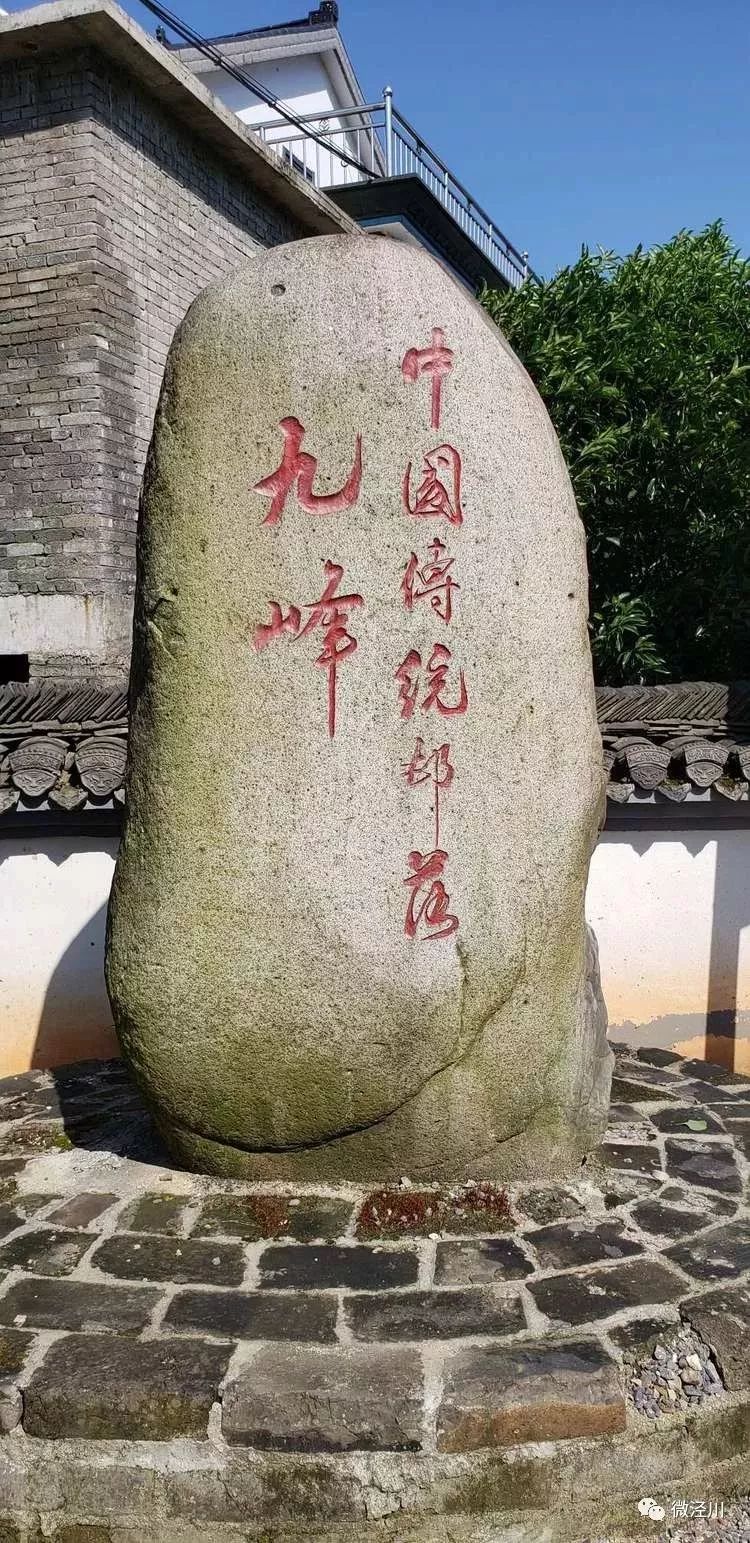 中國傳統邨落
九峰
微泾川